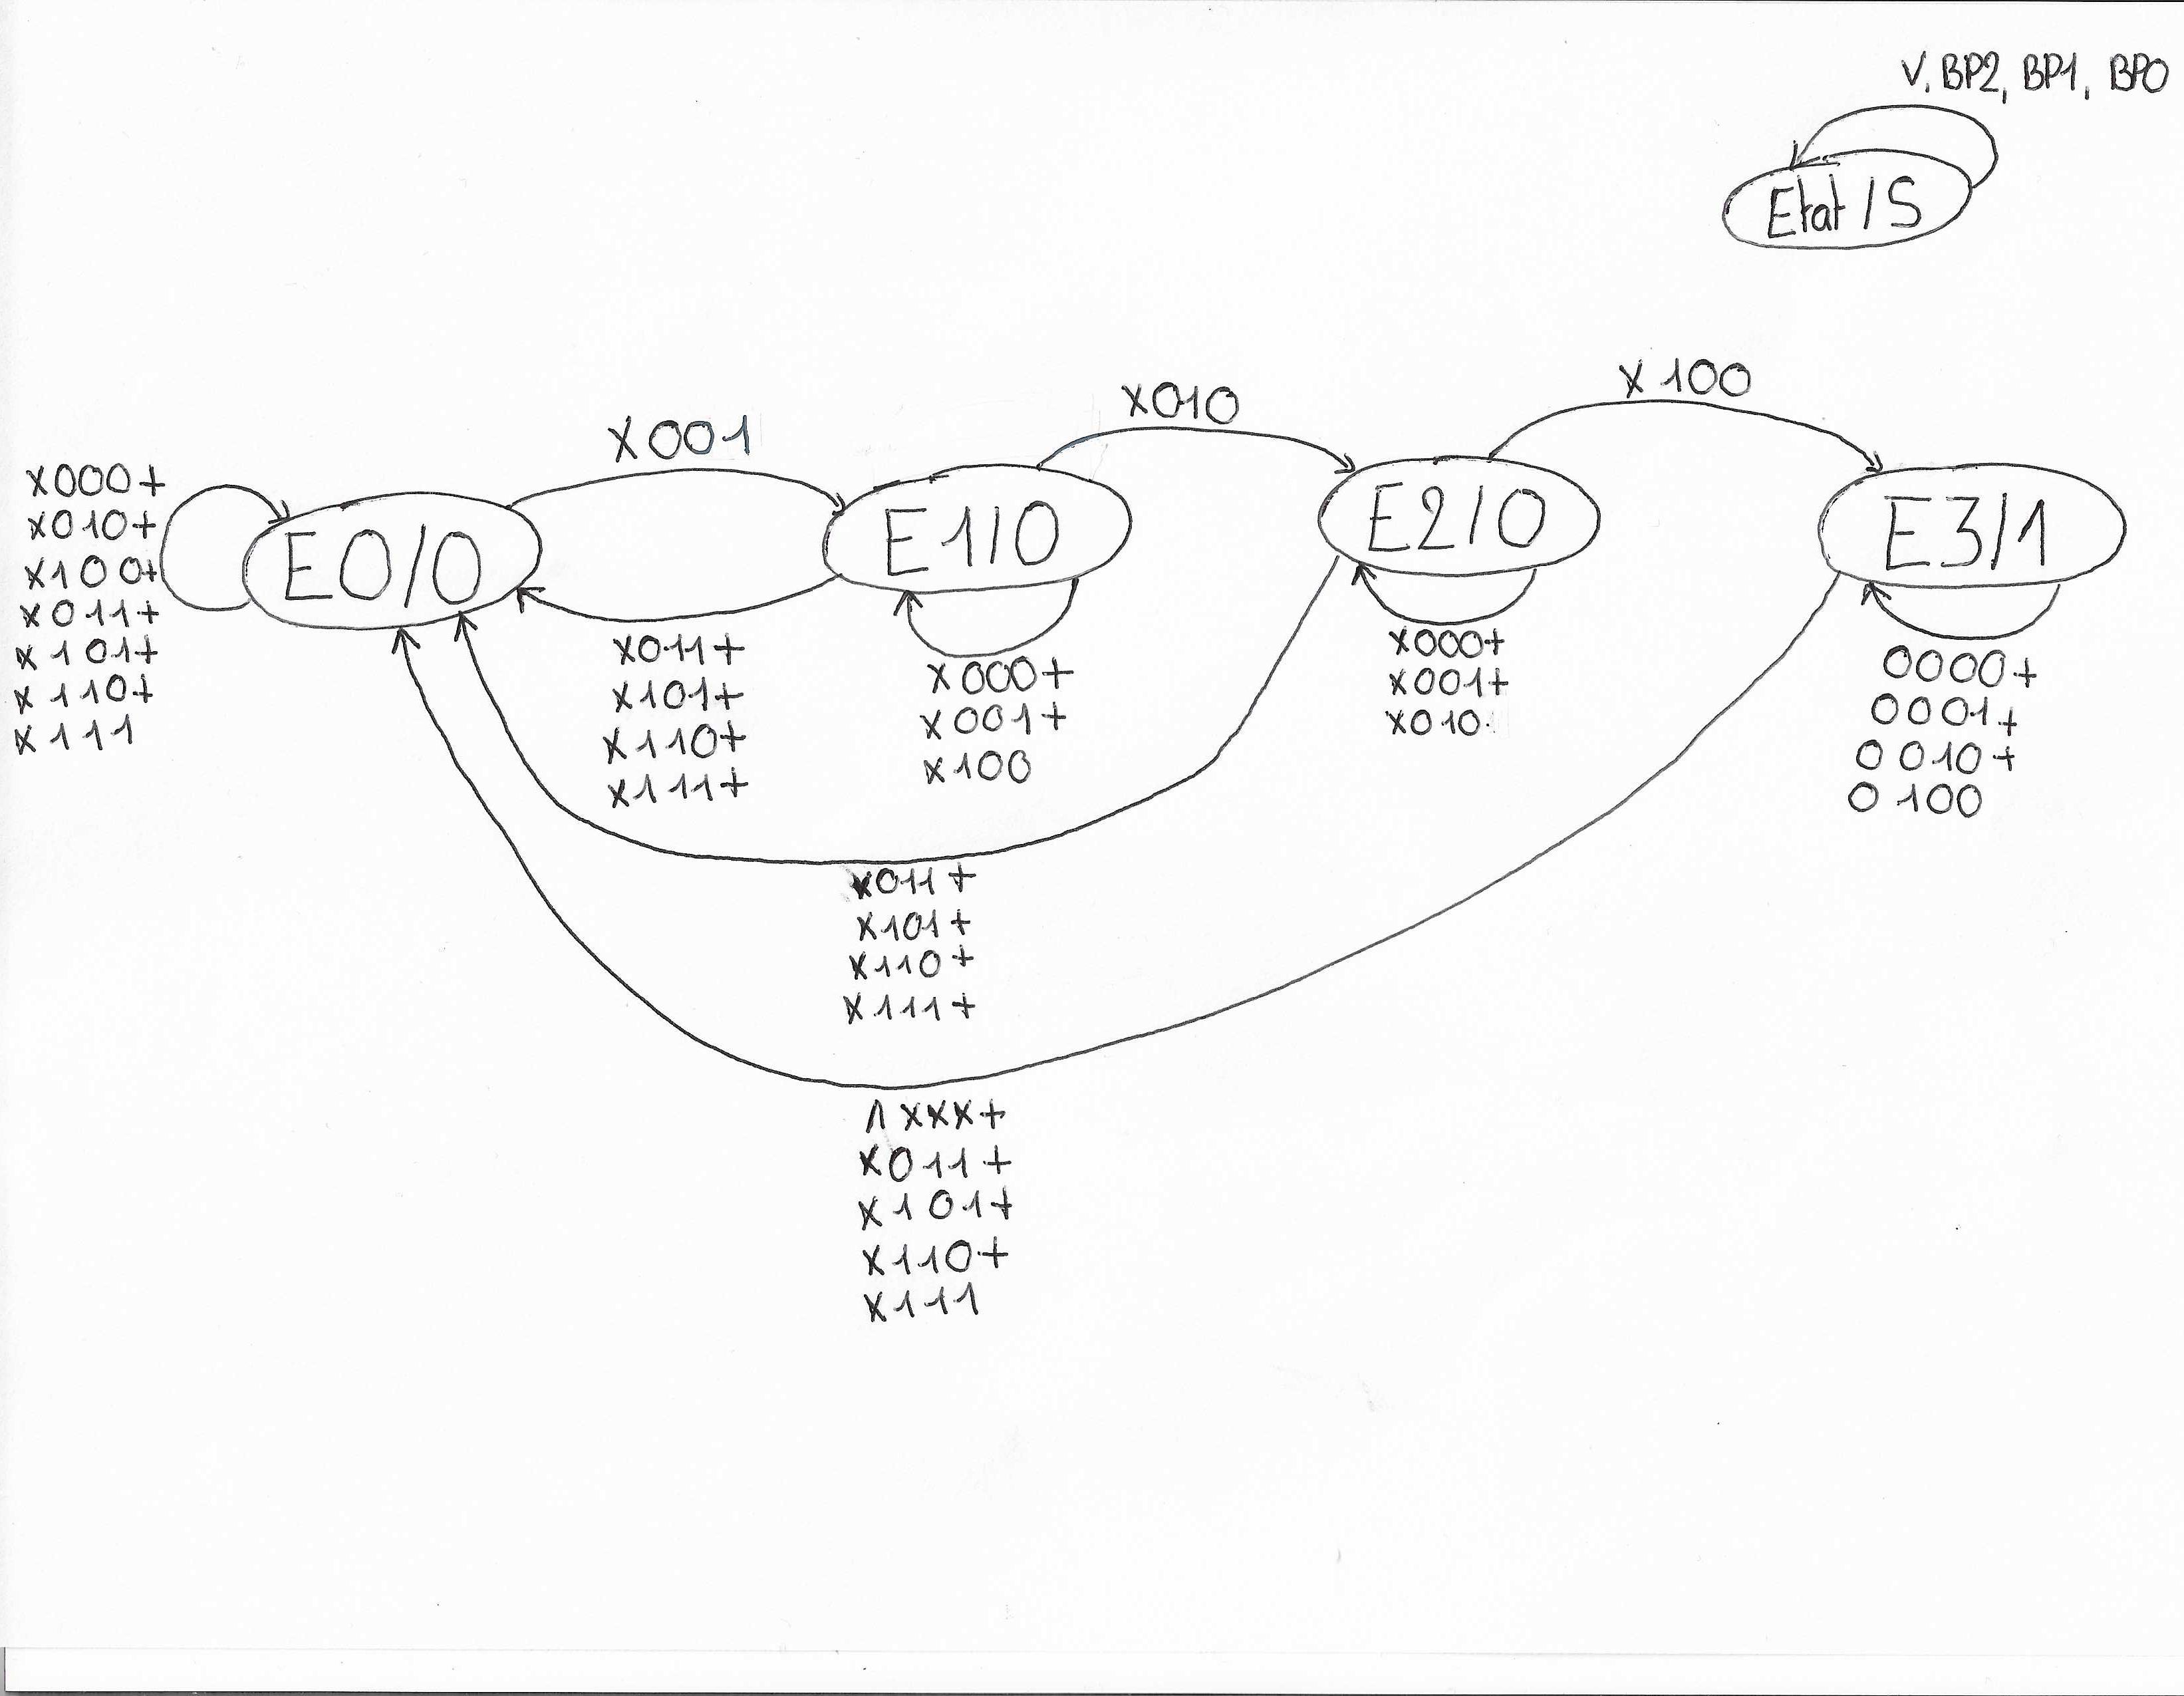 V, BP2, BP1, BP0
Etat / S
x 100
x010
x001
x000+
x010+
x100+
x011+
x101+
x110+
x111
E0/0
E1/0
E2/0
E3/1
x011+
x101+
x110+
x111+
x000+
x001+
x100
x000+
x001+
x010
0000+
0001+
0010+
0100
x011+
x101+
x110+
x111+
1xxx+
x011+
x101+
x110+
x111